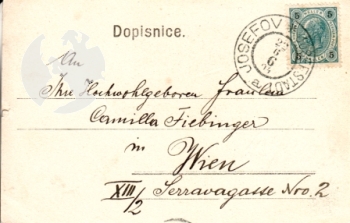 Dopisnice.
JOSEFOV
5 5
An
Ihre Hochwohlgeboren Fräulein
Camilla Fiebinger
in
Wien
XIII/2 Serravagasse Nro. 2